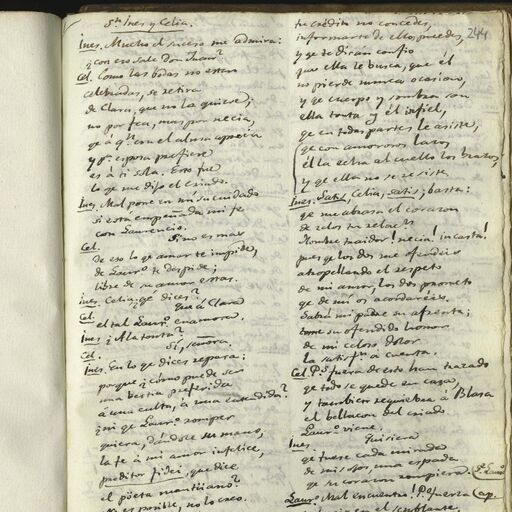 Sn. Ines y Celia.
Ines. Mucho el suceso me admira:
¿con eso sale Don Juan?
Cel. Como las bodas no estan
celebradas, se retira
de Clara, que no la quiere;
no por fea, mas por necia,
qe á qn. con el alma aprecia
y pr. esposa prefiere
es á ti sola. Esto fue
lo qe me dijo el criado.
Ines. Mal pone en mi su cuidado
si está empeñada mi fe
con Laurencio.
Cel. Si no es mas
de eso lo qe amarte impide,
de Laurº te despide;
libre de su amor estas.
Ines. Celia; qe dices?
Cel. Que á Clara
el tal Laurº enamora.
Ines ¿A la tonta?
Cel. Si, señora.
Ines. En lo qe dices repara:
porque ¿como puede ser
una bestia preferida
á una culta, á una entendida?
¿ni qe Laurº romper
quiera, dándole su mano,
la fe á mi amor infelice,
proditor fidei, que dice
el pöeta mantüano?
No es posible, no lo creo.
244
tu crédito no concedes,
informarte de ellos puedes,
y qe te dirán confio
que ella le busca, que él
no pierde nunca ocasion,
y qe cuerpo y sombra son
ella tonta y él infiel,
qe en todas partes le asiste,
qe con amorosos lazos
él la echa al cuello los brazos,
y qe ella no se resiste.
Ines. Satis, Celia, satis; basta:
qe me abrasa el corazon
de celos tu relacn.
Hombre traidor! necia! incasta!
pues qe los dos me ofendeis
atropellando el respeto
de mi amor, los dos prometo
qe de mi os acordareis.
Sabrá mi padre su afrenta;
tome su ofendido honor
de mi celoso dolor
la satisfn. á cuenta.
Cel. Ps. fuera de esto han trazado
qe todo se quede en casa,
y tambien requiebra á Blasa
el bellacon del criado
Laurº viene.
Ines. Quisiera
qe fuese cada mirada
de mis ojos una espada
qe su corazon rompiera. Se. Laurº
Laurº Mal encuentro! Pº fuerza